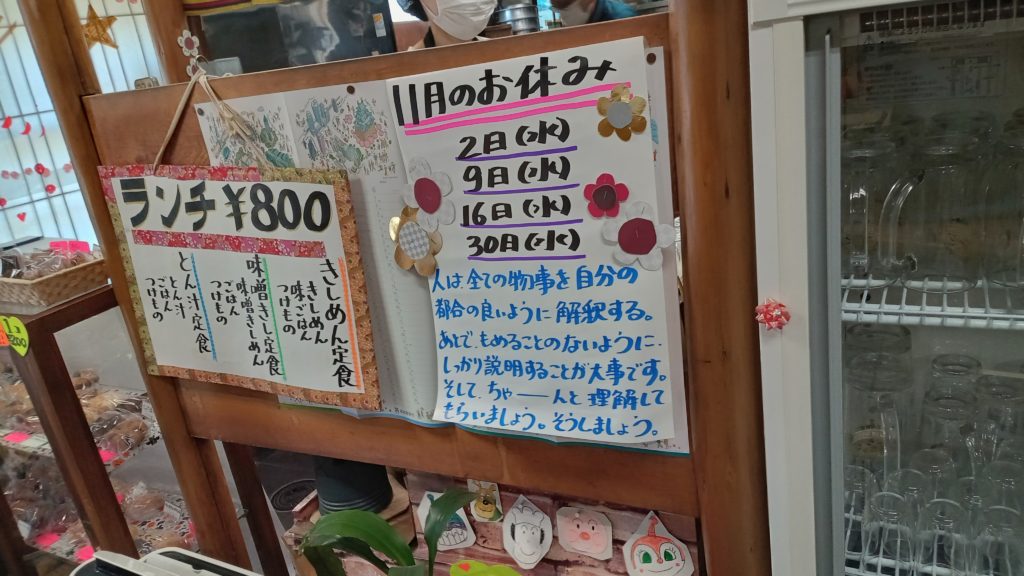 ランチ ¥800
きしめん定食
きしめん
味ごはん
つけもの
味噌きし定食
味噌きしめん
ごはん
つけもの
とん汁定食
とん汁
ごはん
つけもの
11月のお休み
2日(水)
9日(水)
16日(水)
30日(水)
人は全ての物事を自分の
都合の良いように解釈する。
あとで、もめることのないように、
しっかり説明することが大事です。
そして、ちゃ――んと理解して
もらいましょう。そうしましょう。